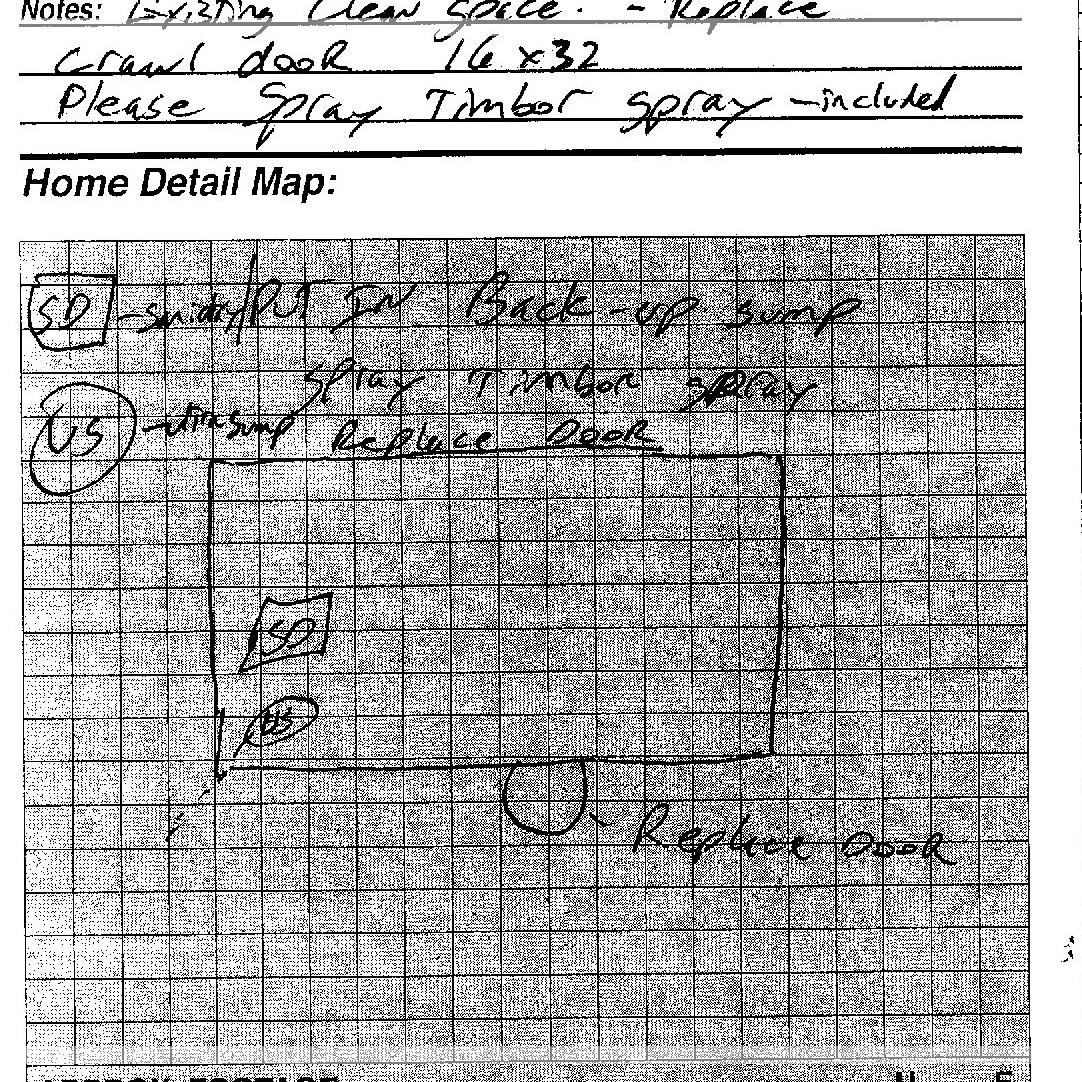 Notes: Existing Clean Space. - Replace
Crawl door 16 x 32
Please Spray Timbor spray - included
Home Detail Map:
SD - /Put In Back-up sump
Spray Timbor spray
US - ultrasump Replace Door
SD
US
- Replace Door